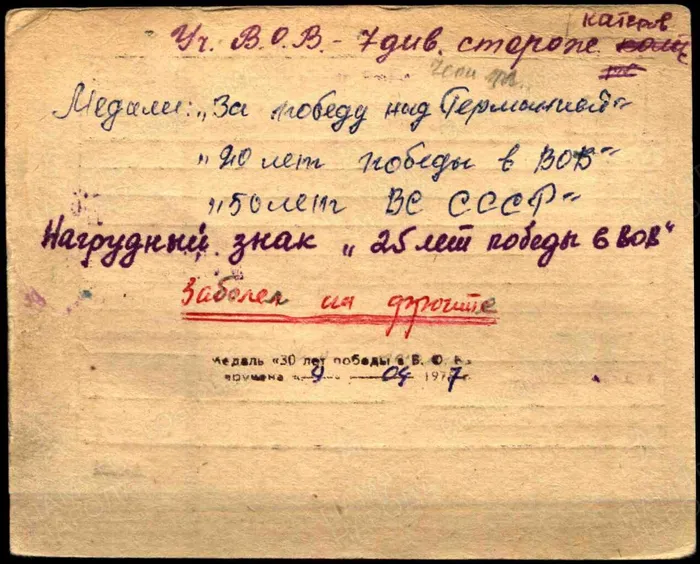 катеров
Уч. В.О.В. - 7 див. стороже
Медали: „За победу над Германией“
„20 лет победы в ВОВ“
„50 лет ВС СССР“
Нагрудный знак „25 лет победы в ВОВ“
Заболел на фронте
Медаль «30 лет победы в В. О. В.»
вручена 9 04 1977 г.